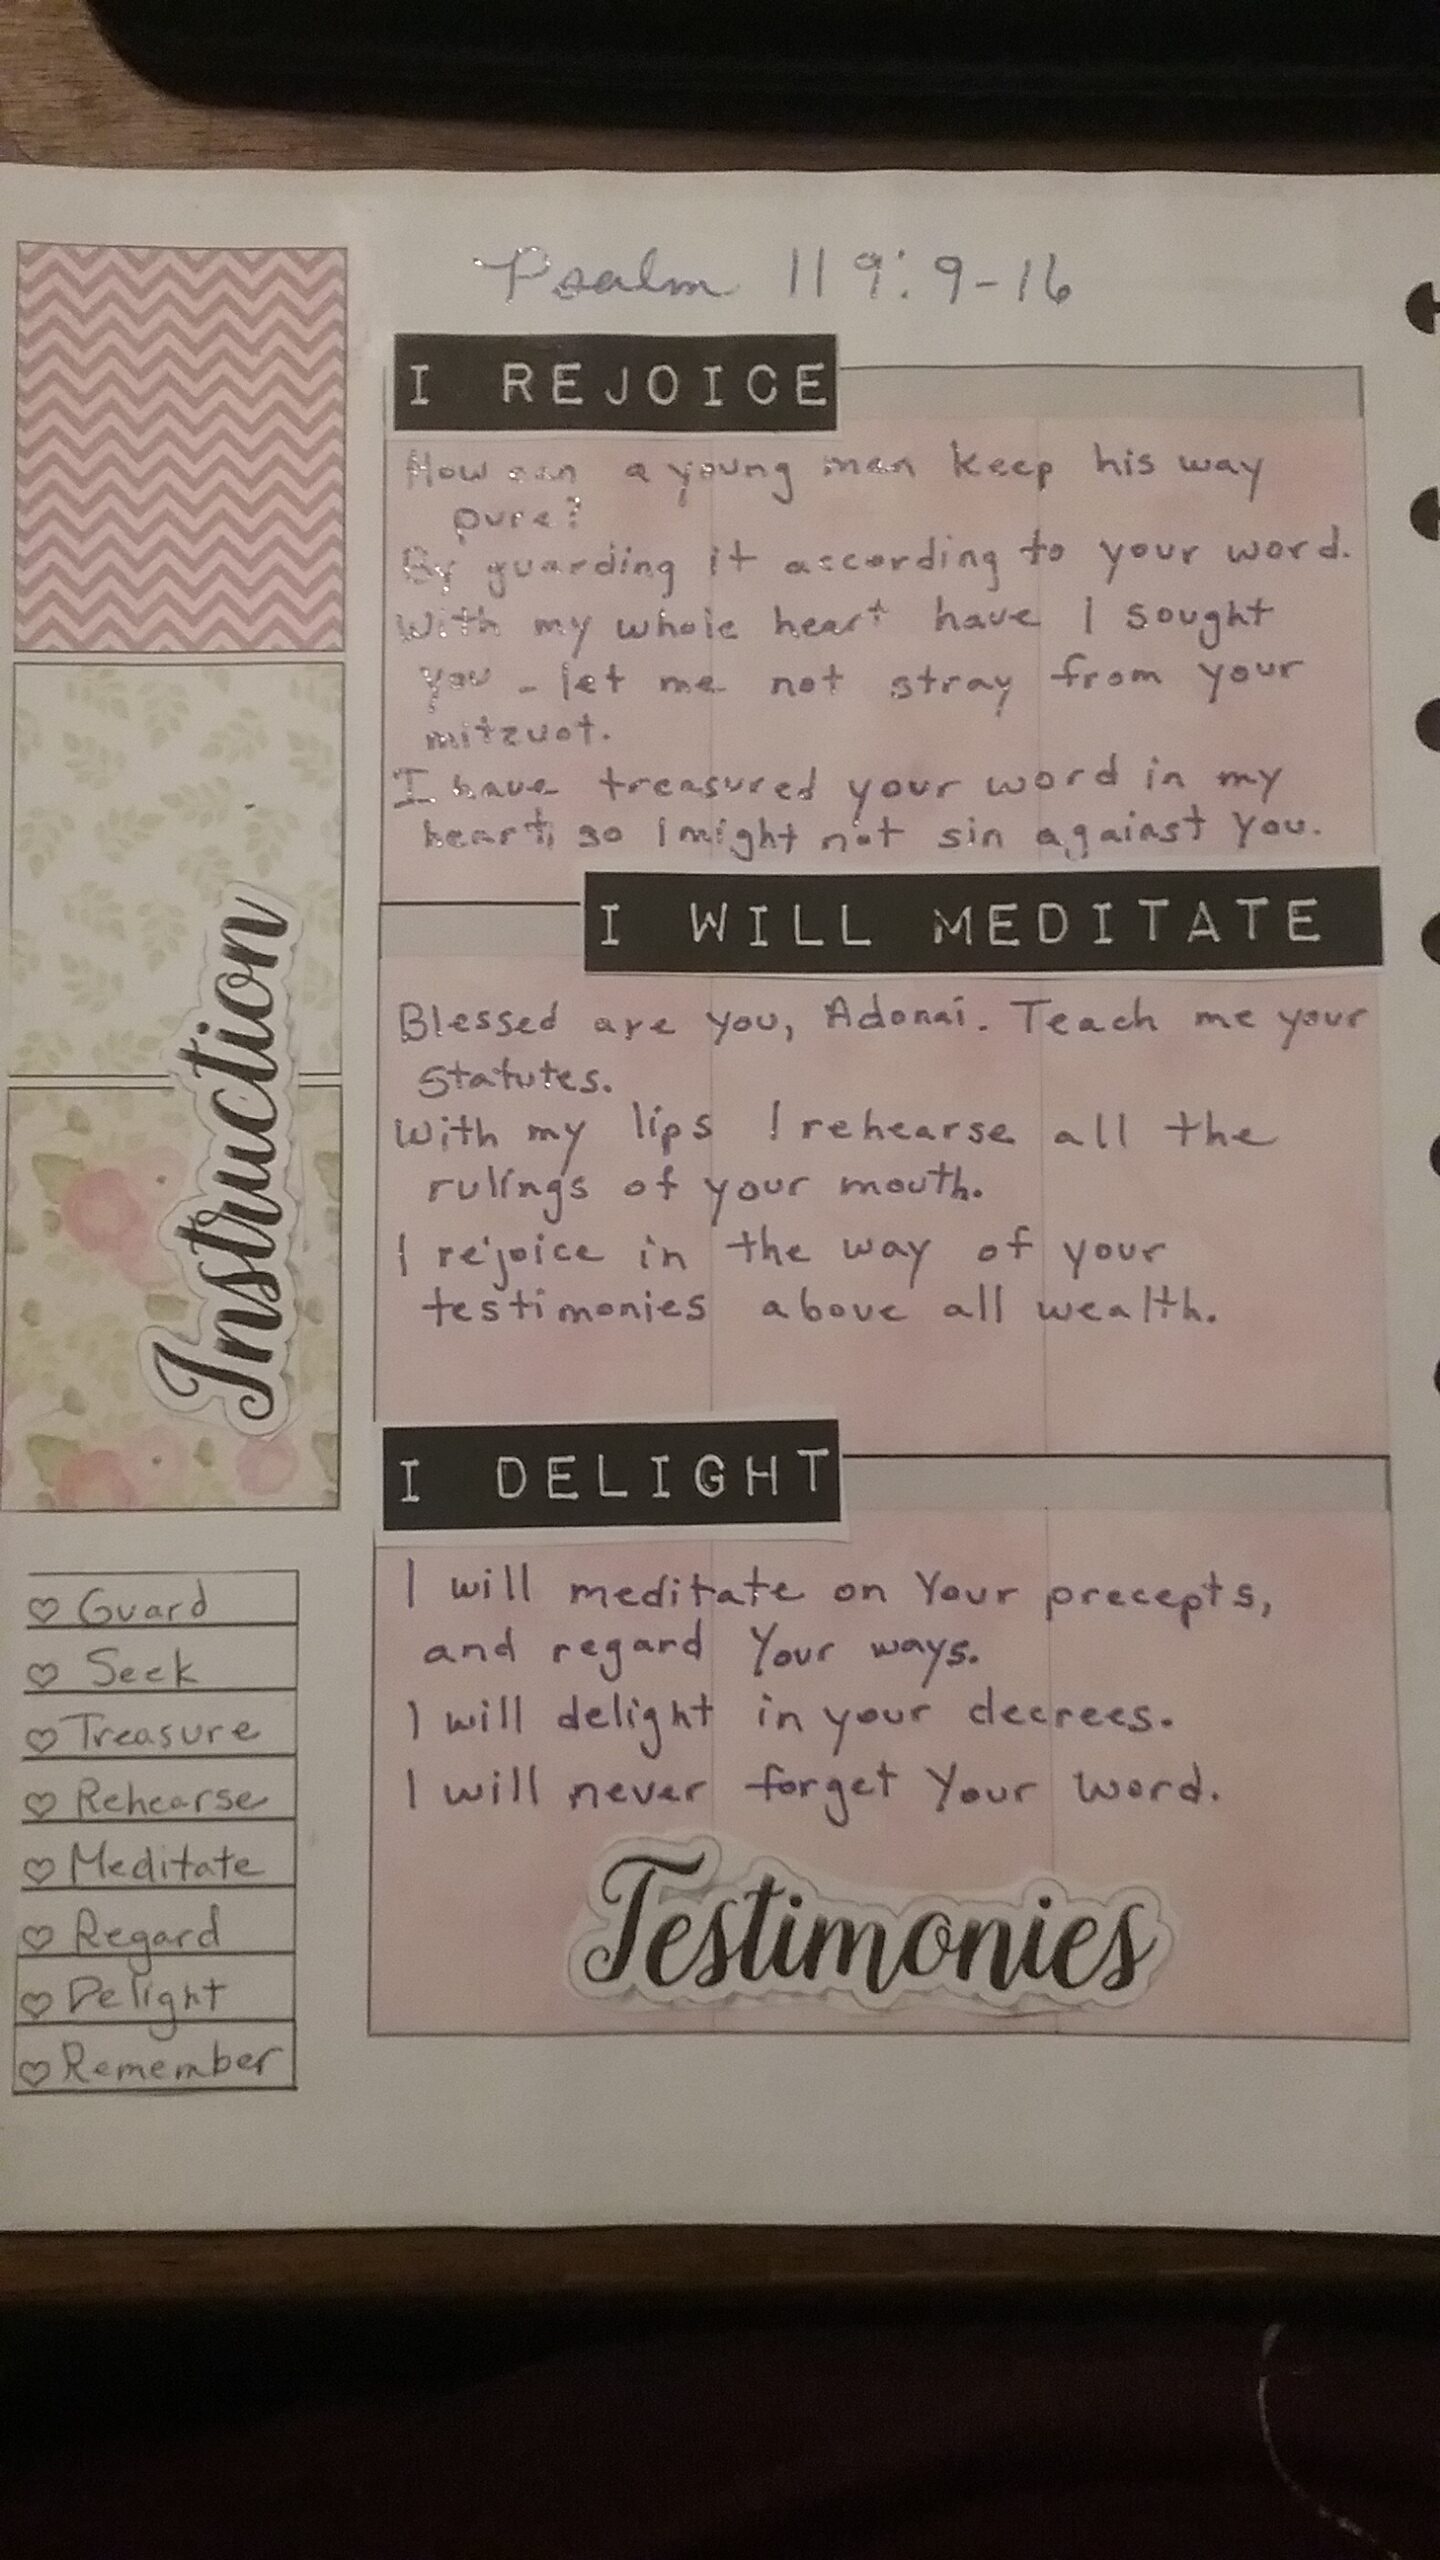 Psalm 119:9-16
I REJOICE
How can a young man keep his way
pure?
By guarding it according to your word.
With my whole heart have I sought
you - let me not stray from your
mitzvot.
I have treasured your word in my
heart, so I might not sin against you.
I WILL MEDITATE
Blessed are you, Adonai. Teach me your
statutes.
With my lips I rehearse all the
rulings of your mouth.
I rejoice in the way of your
testimonies above all wealth.
I DELIGHT
I will meditate on Your precepts,
and regard Your ways.
I will delight in your decrees.
I will never forget Your word.
Testimonies
Instruction
♡ Guard
♡ Seek
♡ Treasure
♡ Rehearse
♡ Meditate
♡ Regard
♡ Delight
♡ Remember